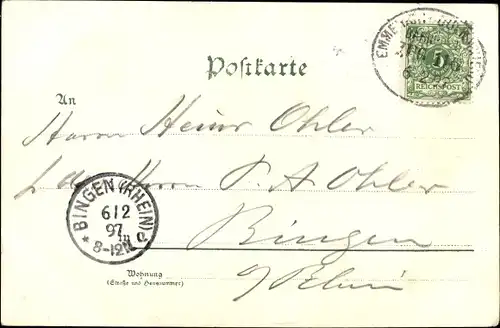 Postkarte
5
REICHSPOST
An
Herrn Heinr Ohler
Herrn P. A Ohler
BINGEN (RHEIN)
6/2
97
8-12N
Bingen
a/Rhein
Wohnung
(Straße und Hausnummer)